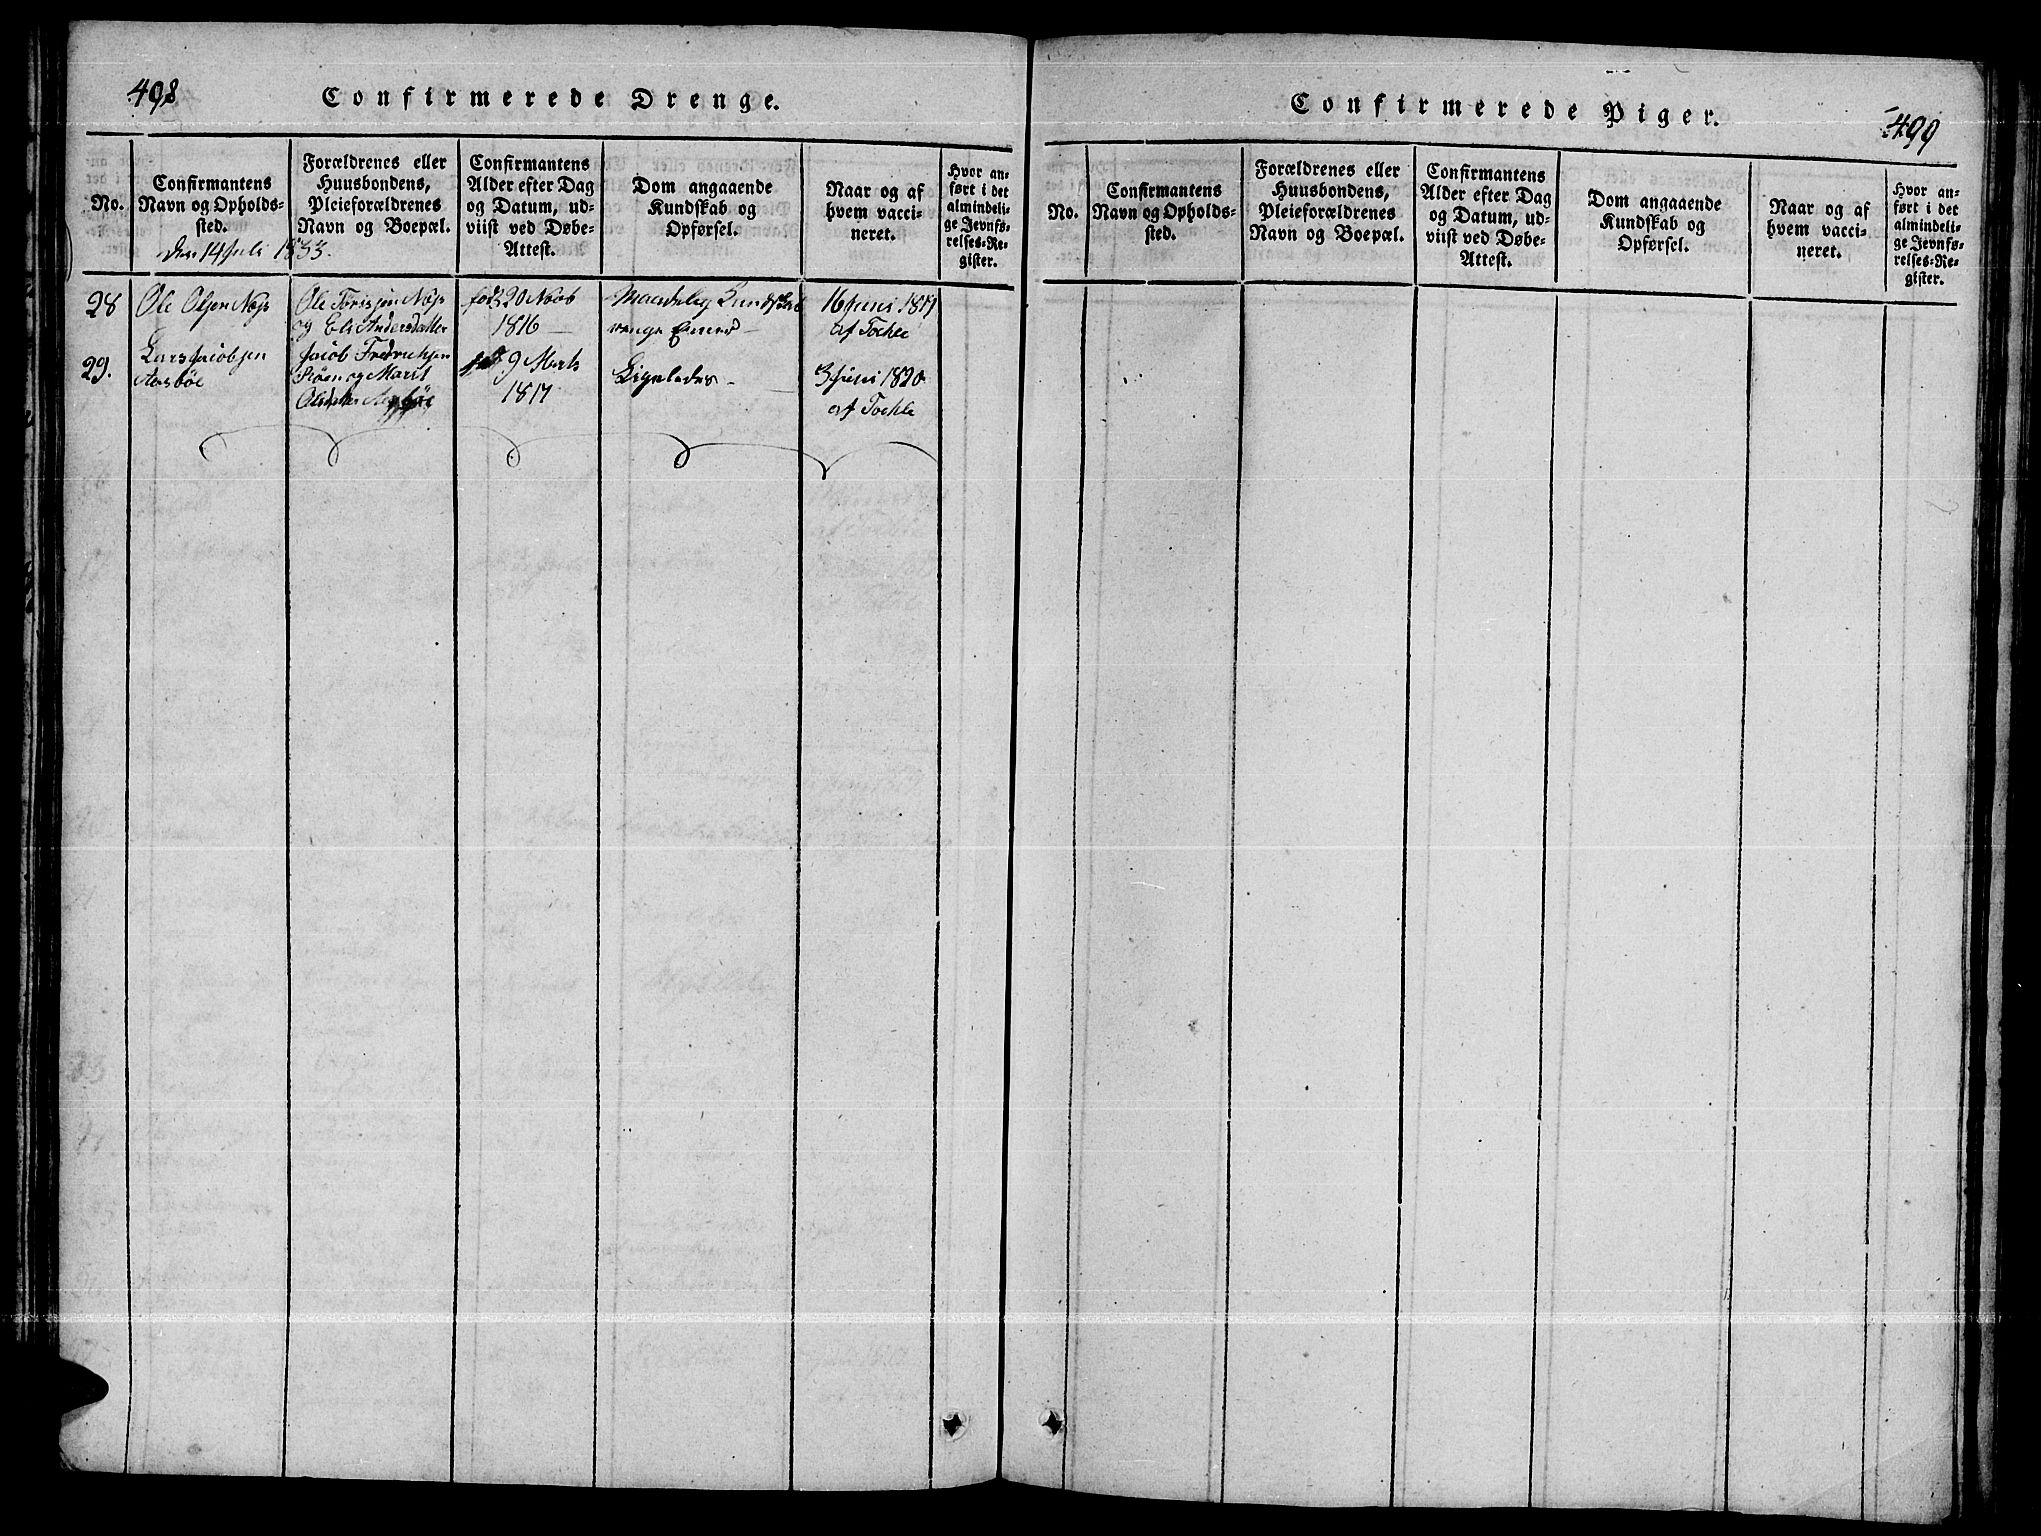 498
Confirmerede Drenge.
No.
Confirmantens
Navn og Opholds-
sted.
Forældrenes eller
Huusbondens,
Pleieforældrenes
Navn og Boepæl.
Confirmantens
Alder efter Dag
og Datum, ud-
viist ved Døbe-
Attest.
Dom angaaende
Kundskab og
Opførsel.
Naar og af
hvem vacci-
neret.
Hvor an-
ført i det
almindeli-
ge Jevnfø-
relses-Re-
gister.
den 14 Juli 1833.
28
Ole Olsen
Ole
og Eli Andersdatter
født 20 Novb
1816
Maadelig Kundskab
16 Juni 1819
af Tochle
29.
Lars Jacobsen
Aasbøe
Jacob Fredrichsen
og Marit
9 Marts
1817
Ligeledes
3 Juni 1820
af Tochle
Confirmerede Piger.
499
No.
Confirmantens
Navn og Opholds-
sted.
Forældrenes eller
Huusbondens,
Pleieforældrenes
Navn og Boepæl.
Confirmantens
Alder efter Dag
og Datum, ud-
viist ved Døbe-
Attest.
Dom angaaende
Kundskab og
Opførsel.
Naar og af
hvem vacci-
neret.
Hvor an-
ført i det
almindeli-
ge Jevnfø-
relses-Re-
gister.